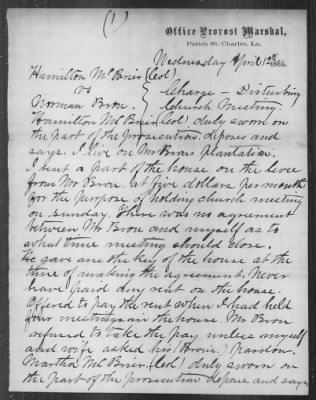 (1)
Office Provost Marshal,
Parish St. Charles, La.
Wednesday April 12th 1865.
Hamilton Mc Brier (Col)
vs
Norman Brou.
Charge - Disturbing
Church Meeting
Hamilton Mc Brier (Col) duly sworn on
the part of the prosecution, deposes and
says. I live on Mr Brous plantation.
I rent a part of the house on the levee
from Mr Brou. at five dollars per month
for the purpose of holding church meeting
on Sunday. There was no agreement
between Mr Brou and myself as to
what time meeting should close.
He gave me the key of the house at the
time of making the agreement. Never
have paid any rent on the house.
Offered to pay the rent when I had held
four meetings in the house. Mr Brou
refused to take the pay unless myself
and wife asked his (Brou's) pardon.
Martha Mc Brier (Col) duly sworn on
the part of the prosecution deposes and says